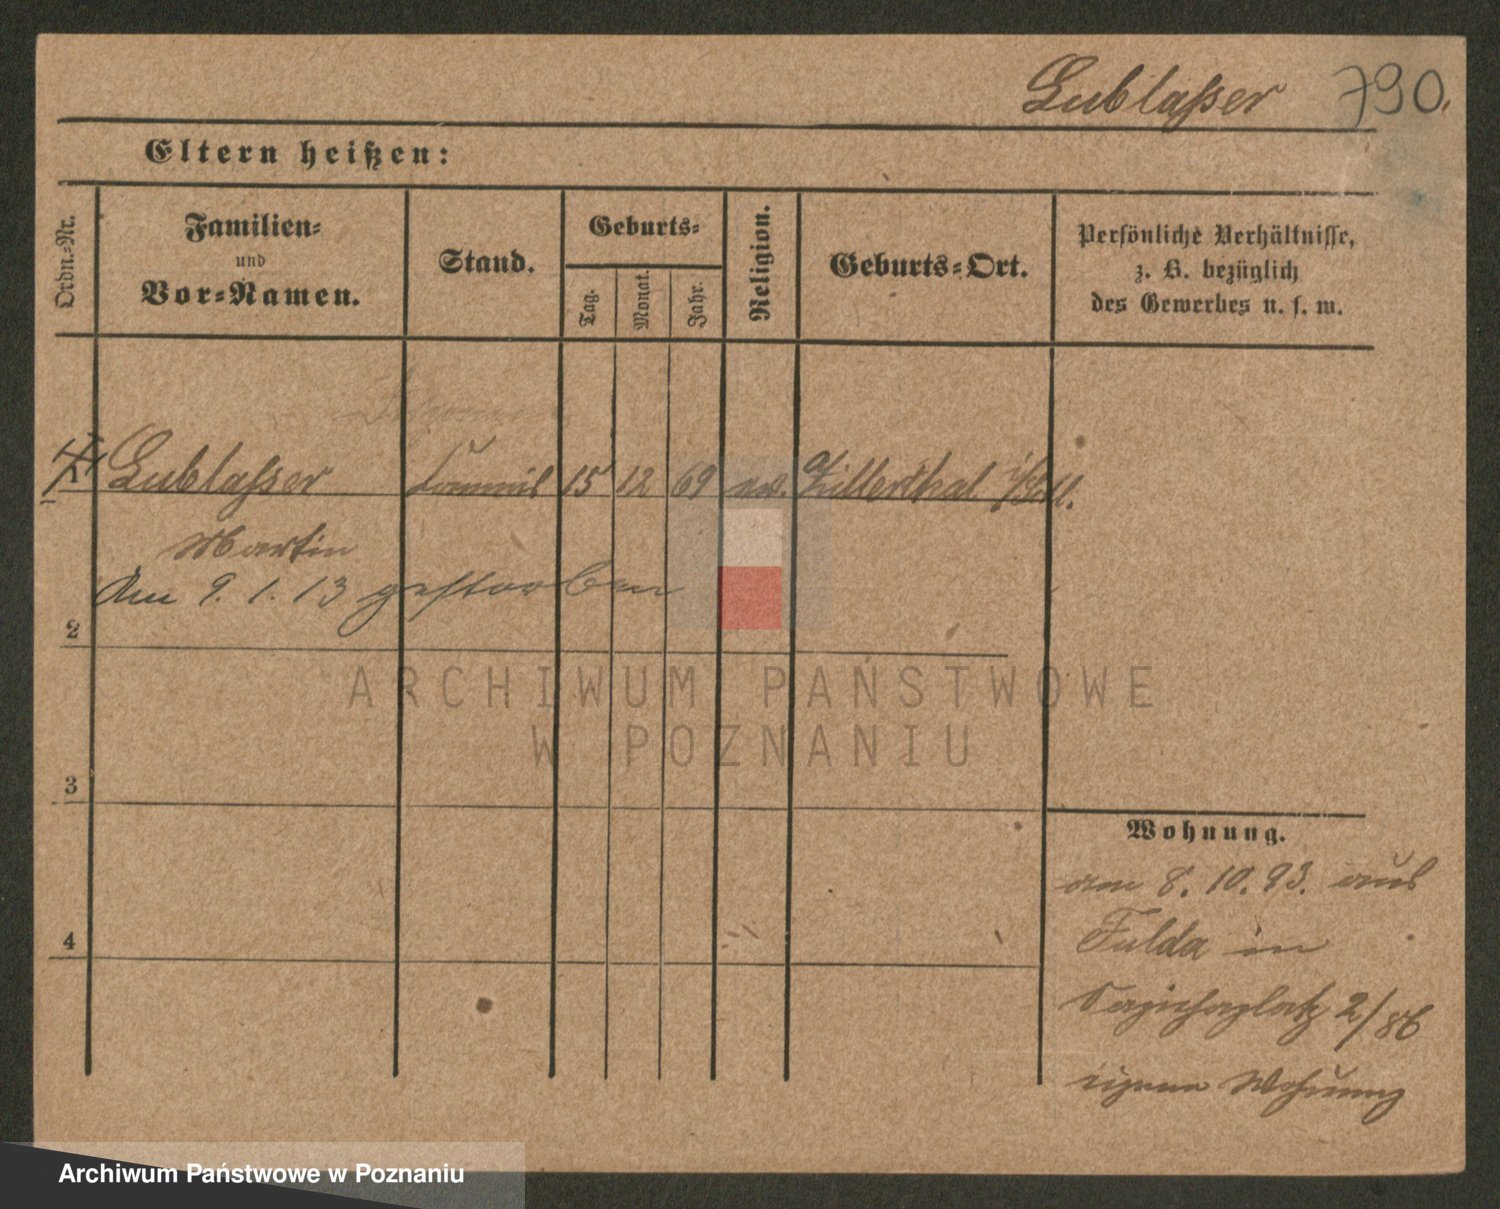 Lublaßer 790.
Eltern heißen:
Ordn.-Nr.
Familien-
und
Vor-Namen.
Stand.
Geburts-
Tag.
Monat.
Jahr.
Religion.
Geburts-Ort.
Persönliche Verhältnisse,
z. B. bezüglich
des Gewerbes u. s. w.
1 Lublaßer Commis 15 12 69 ev. Zillerthal
Martin
Am 9. 1. 13 gestorben
2
ARCHIWUM PAŃSTWOWE
W POZNANIU
3
Wohnung.
am 8. 10. 93. aus
4
Fulda in
Sapiehaplatz 2/
eigene Wohnung
Archiwum Państwowe w Poznaniu